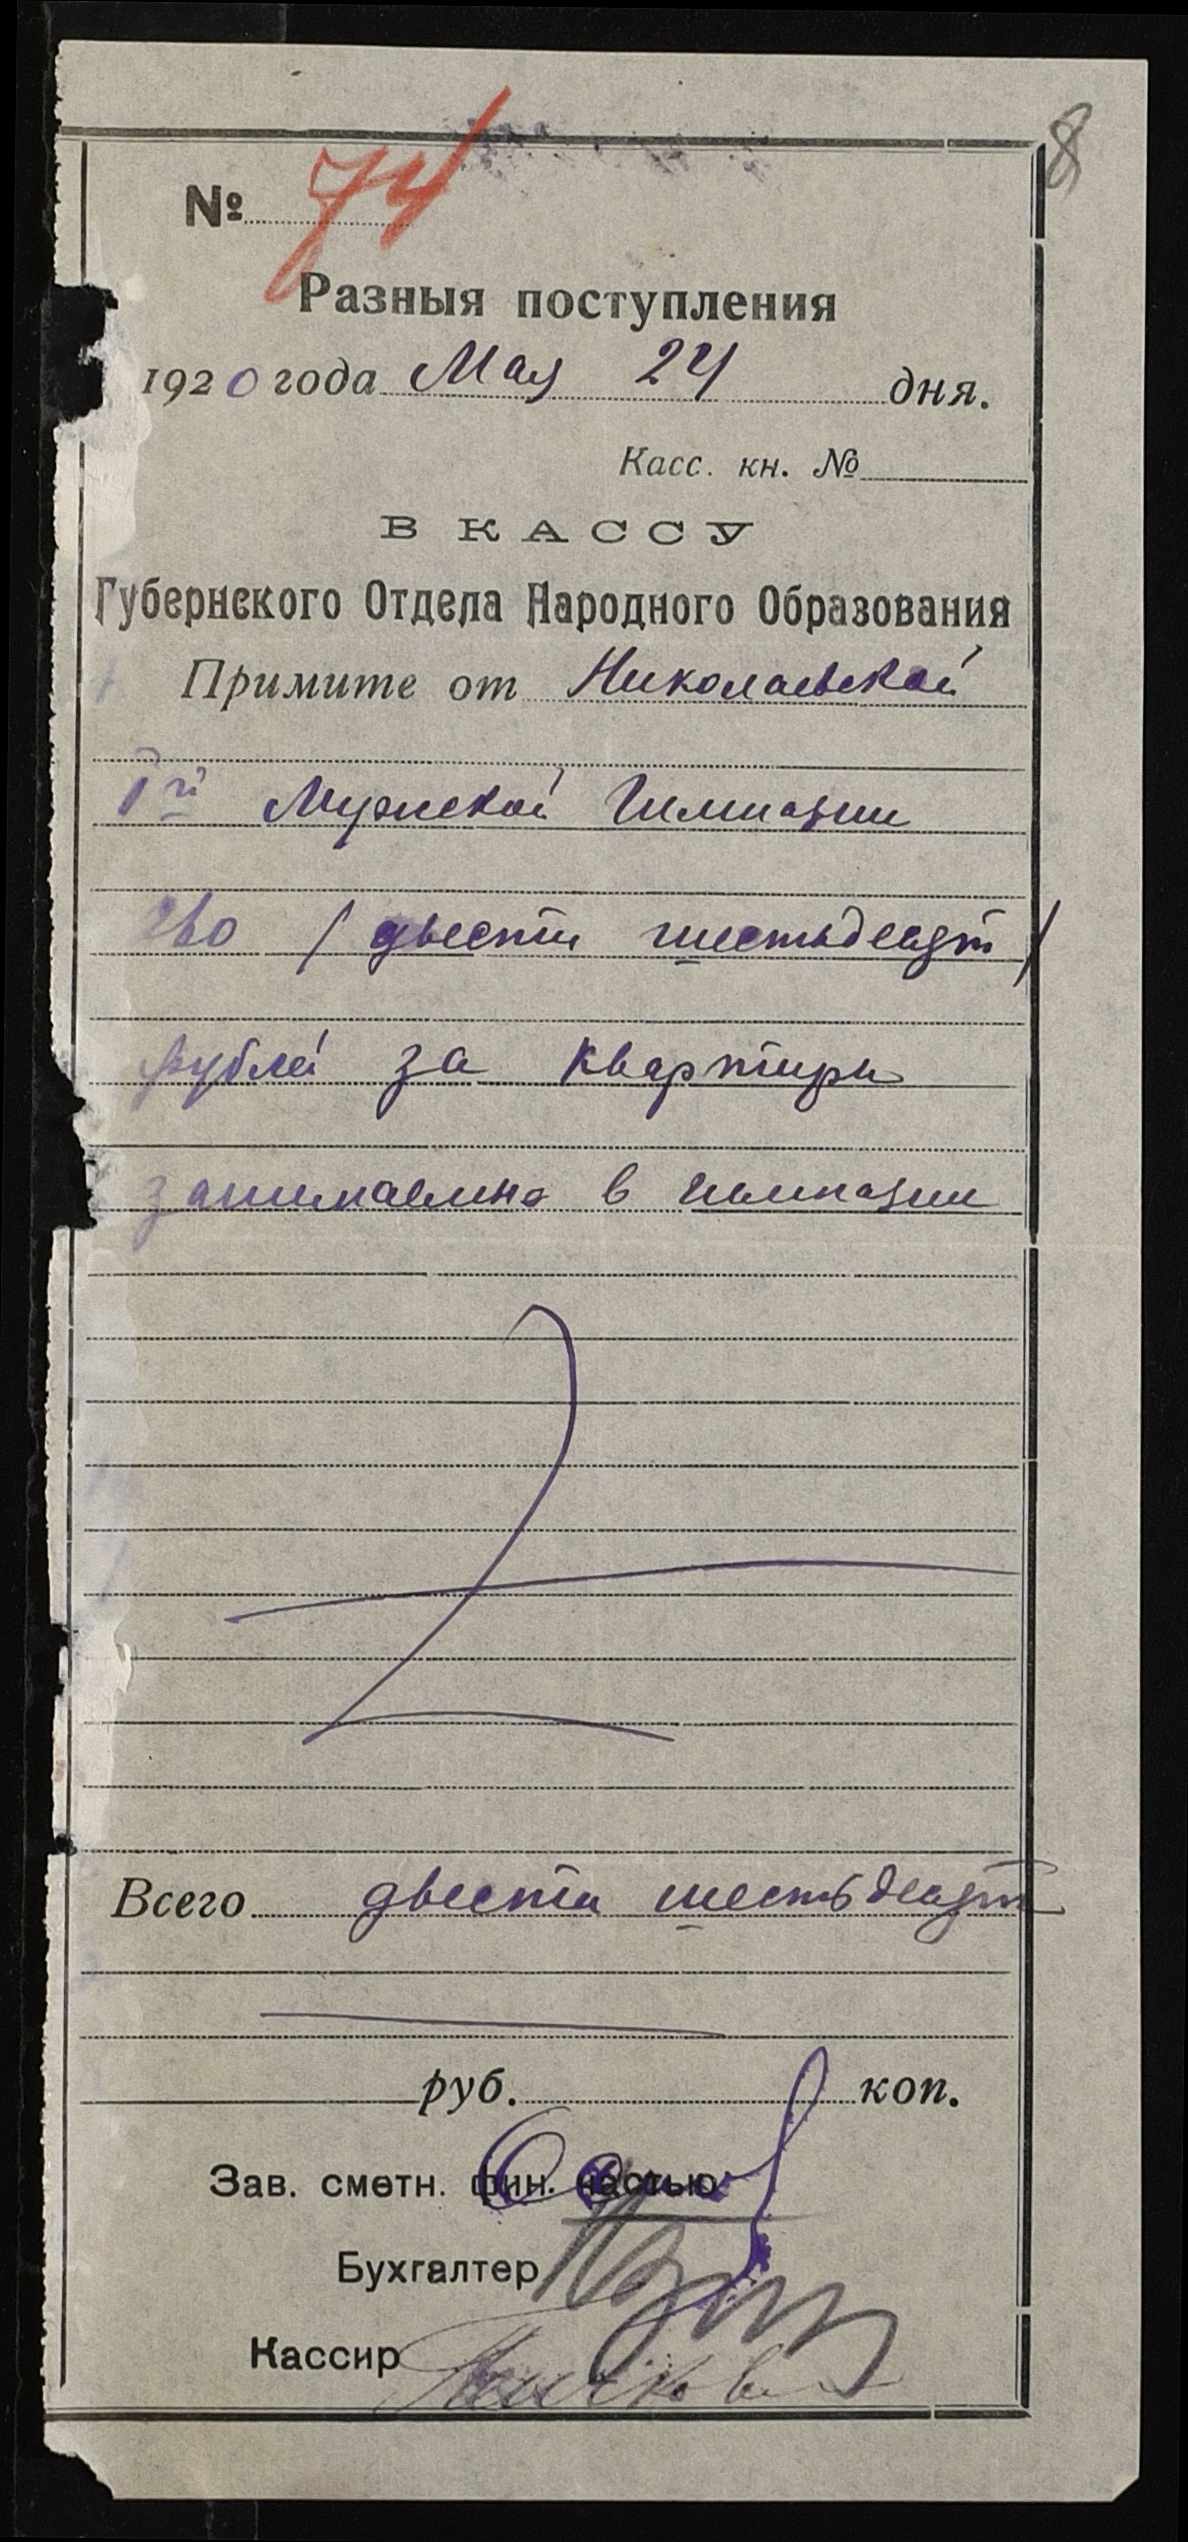 8
№ 74
Разныя поступления
1920 года Мая 24 дня.
Касс. кн. №
В КАССУ
Губернского Отдела Народного Образования
Примите от Николаевской
1й Мужской Гимназии
260 (двести шестьдесят)
рублей за квартиры
занимаемые в гимназии
Всего двести шестьдесят
руб. коп.
Зав. сметн. фин. частью
Бухгалтер
Кассир